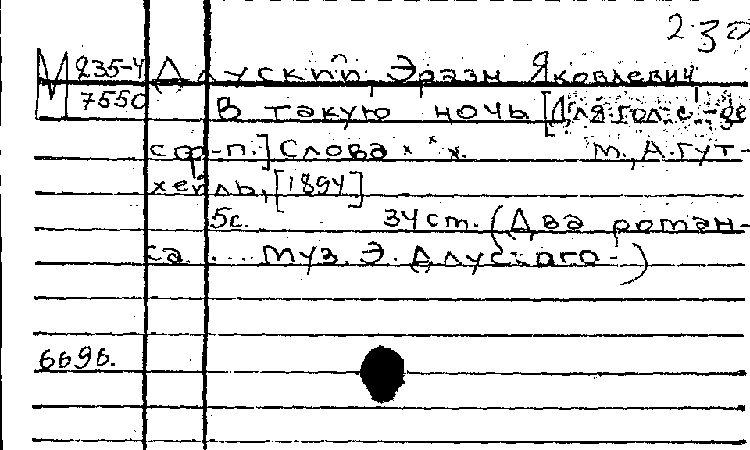 230
М 235-4 Длуский, Эразм Яковлевич
7550 В такую ночь [Для гол. с.-де
с ф-п.] Слова х х х. М., А. Гут-
хейль, [1894]
5с. 34 ст. (Два роман-
са ... муз. Э. Длуского.)
6696.